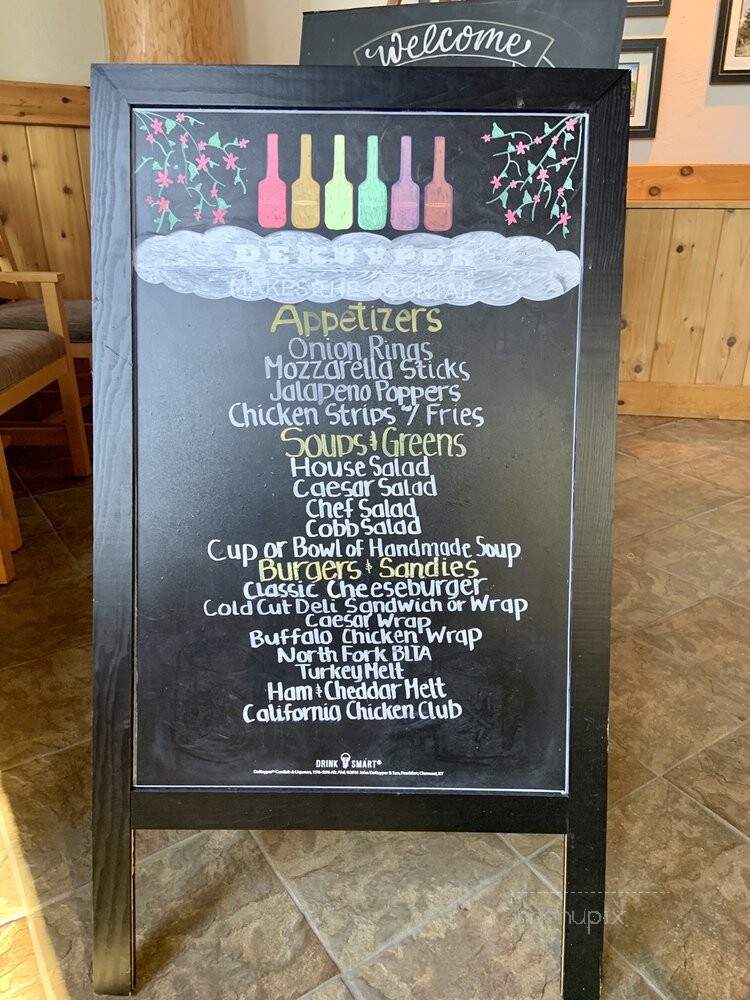 welcome
DEKUYPER
MAKES THE COCKTAIL
Appetizers
Onion Rings
Mozzarella Sticks
Jalapeno Poppers
Chicken Strips w/ Fries
Soups & Greens
House Salad
Caesar Salad
Chef Salad
Cobb Salad
Cup or Bowl of Handmade Soup
Burgers & Sandies
Classic Cheeseburger
Cold Cut Deli Sandwich or Wrap
Caesar Wrap
Buffalo Chicken Wrap
North Fork BLTA
Turkey Melt
Ham & Cheddar Melt
California Chicken Club
DRINK SMART®
DeKuyper® Cordials & Liqueurs, 15%-50% Alc./Vol. ©2018 John DeKuyper & Son, Frankfort, Clermont, KY
menupix